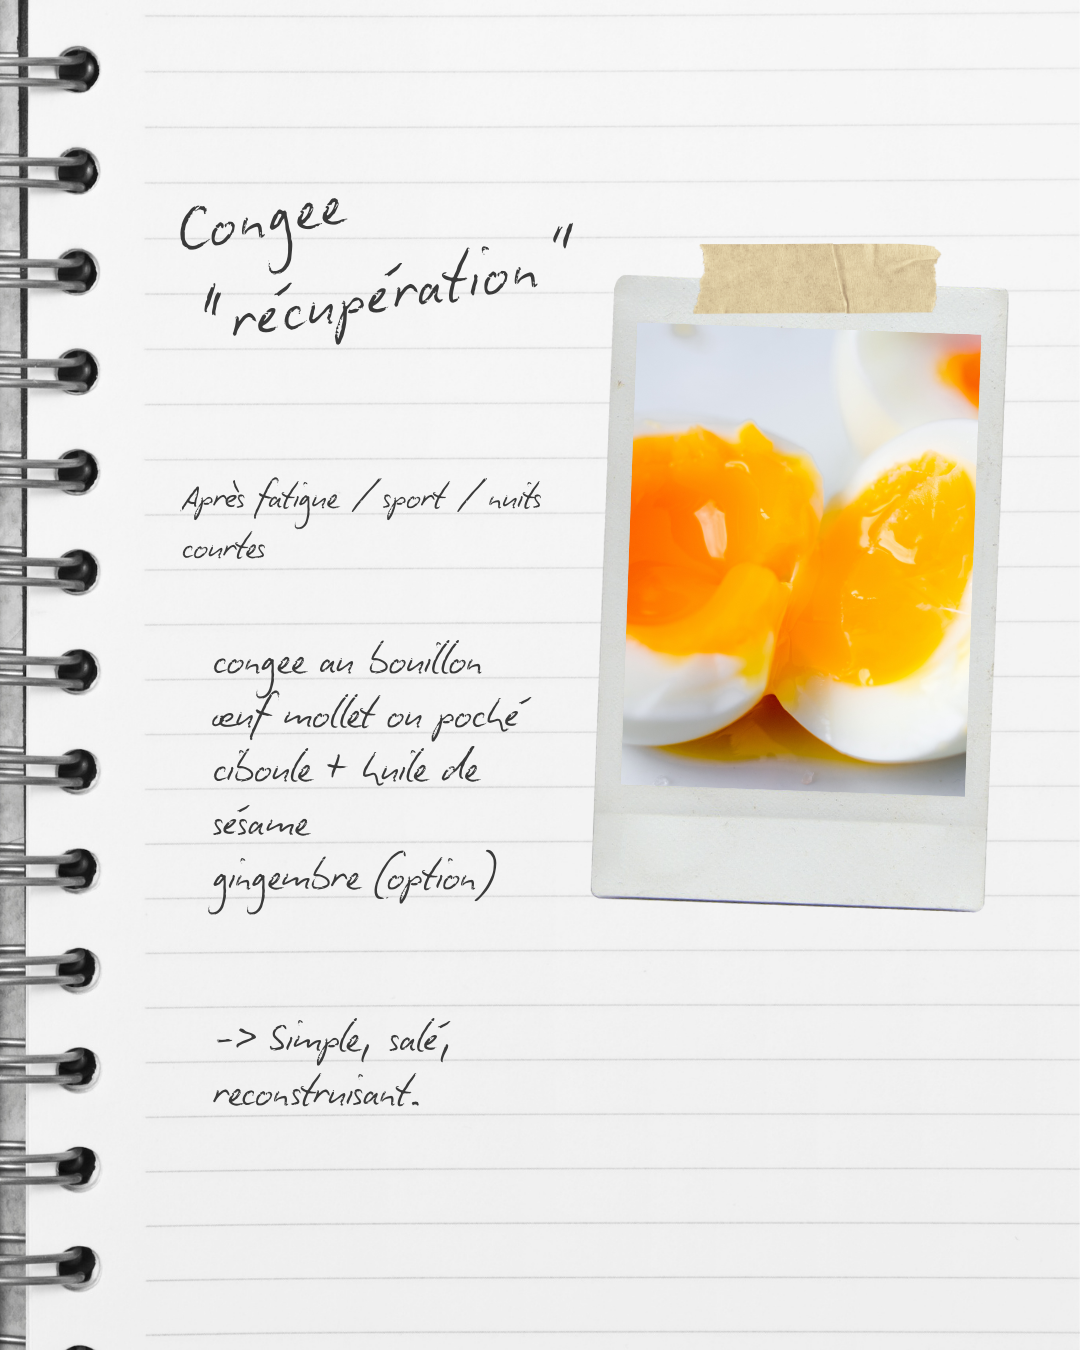 Congee
"récupération"
Après fatigue / sport / nuits
courtes
congee au bouillon
œuf mollet ou poché
ciboule + huile de
sésame
gingembre (option)
-> Simple, salé,
reconstruisant.